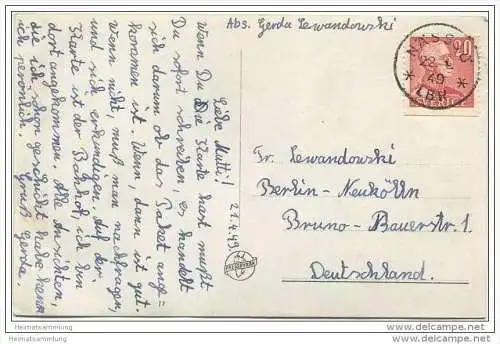 Abs. Gerda Lewandowski
NÄSSJÖ
22 4
49
LBR
20
SVERIGE
Fr. Lewandowski
Berlin - Neukölln
Bruno - Bauerstr. 1
Deutschland.
21.4.49
Liebe Mutti!
Wenn Du Die Karte hast mußt
Du sofort schreiben, es handelt
sich darum ob das Paket ange=
kommen ist. Wenn, dann ist gut.
wenn nicht, muß man nachfragen,
und sich erkundigen. Auf der
Karte ist der Bahnhof, ich bin
dort angekommen. Alle Ansichten,
die ich schon geschickt habe kenn
ich persönlich. Gruß
Gerda.
Heimatsammlung
Heimatsammlung
Heimatsammlung
Heimatsammlung